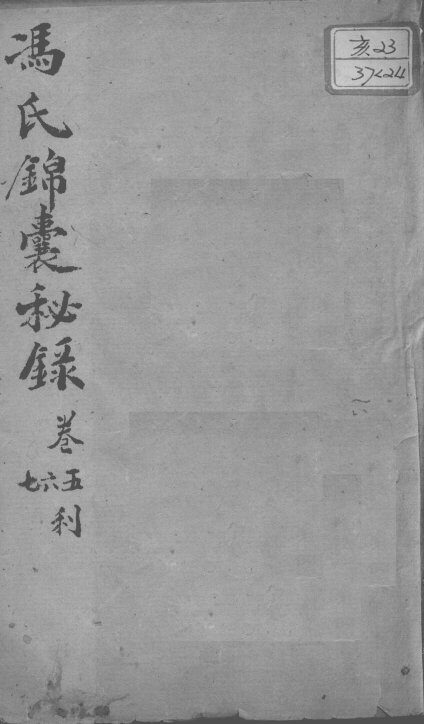 馮氏錦囊秘録
卷
五六七
利
亥23
37424